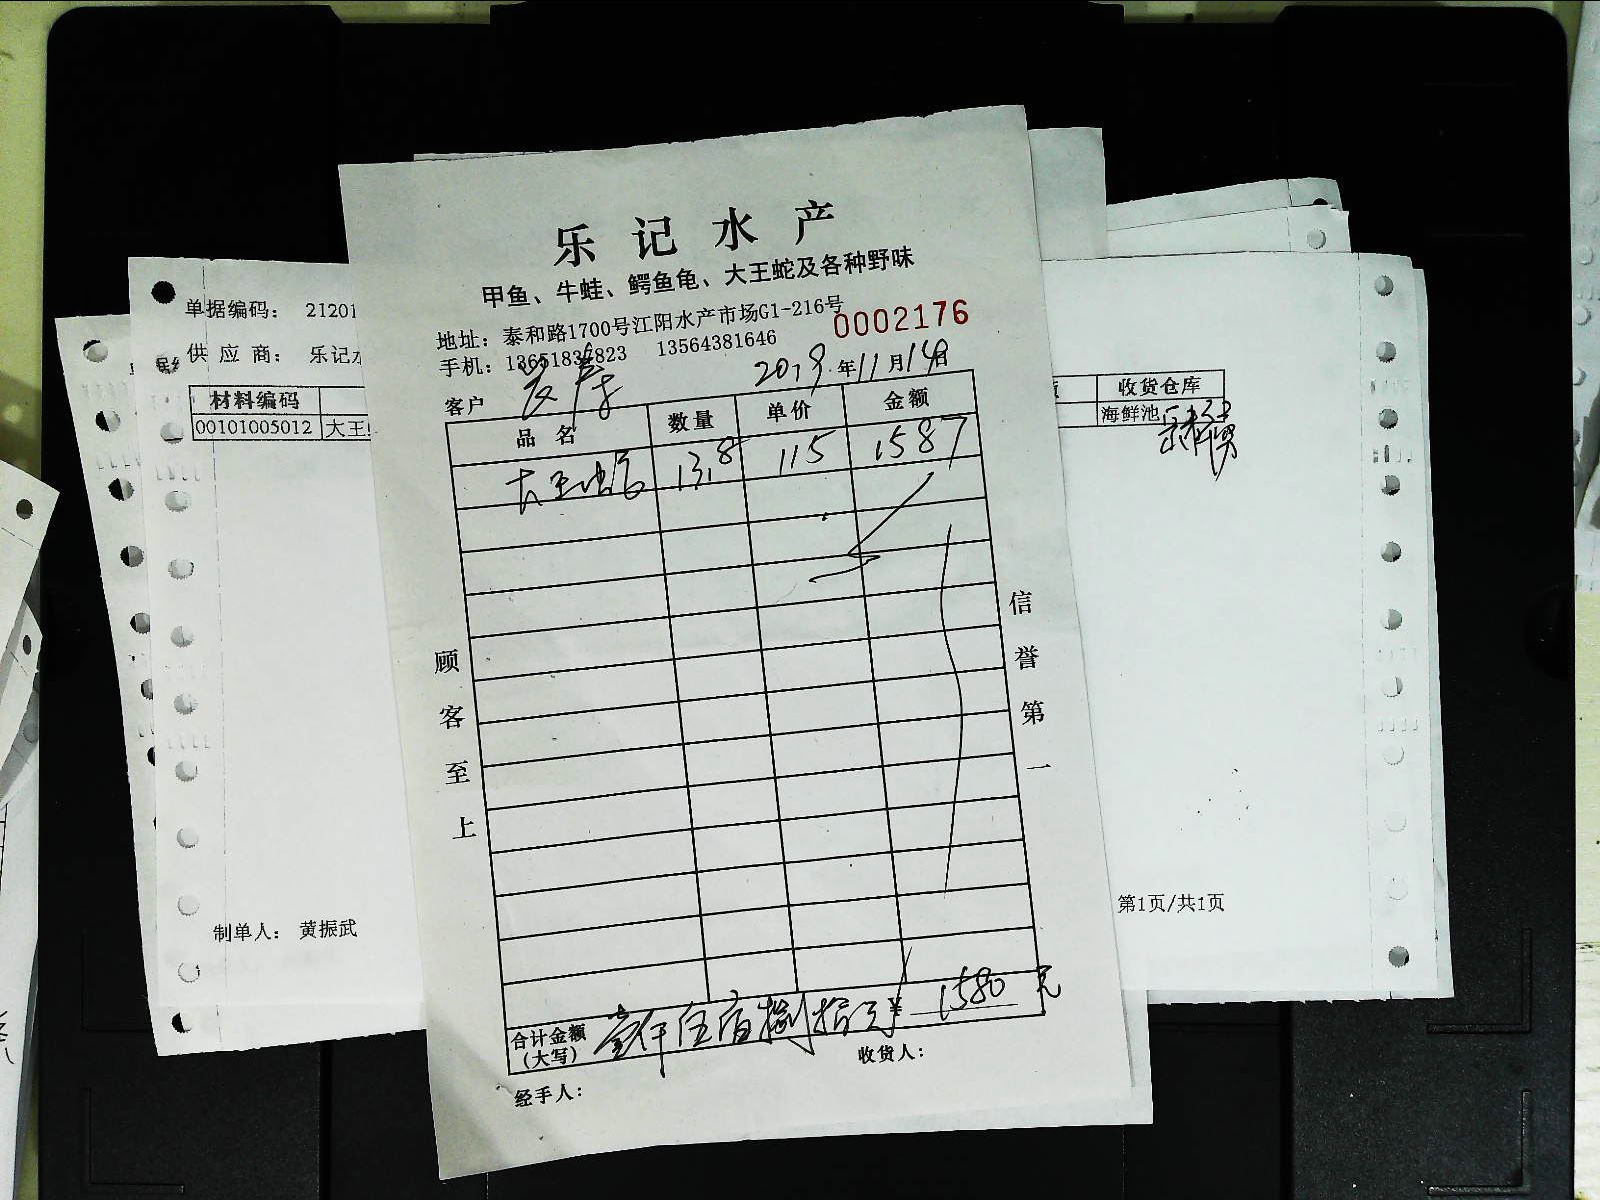 乐记水产
甲鱼、牛蛙、鳄鱼龟、大王蛇及各种野味
地址：泰和路1700号江阳水产市场G1-216号
手机：13651837823 13564381646
0002176
2019年11月14日
客户
品名 数量 单价 金额
大王蛇 13.8 115 1587
顾客至上
信誉第一
合计金额（大写） 壹仟伍佰捌拾元 ¥1580元
收货人：
经手人：
单据编码： 21201
供应商： 乐记水
材料编码
00101005012 大王
制单人： 黄振武
收货仓库
海鲜池
第1页/共1页